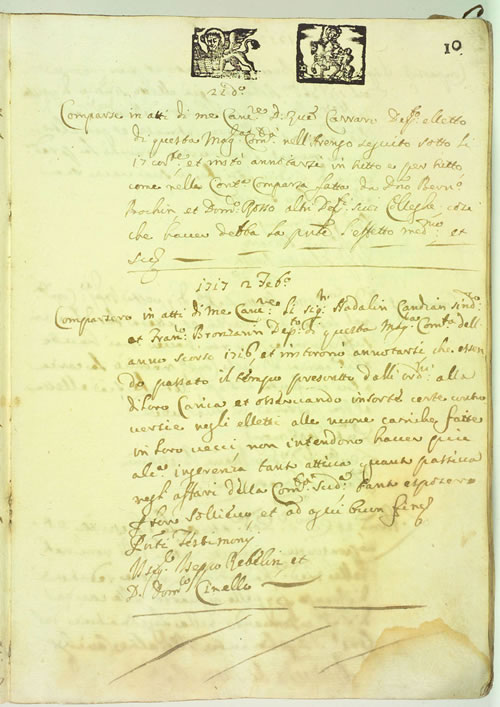 10
21 do
Comparse in atti di me Canc.re D: Carraro Dep.o elletto
di questa Mag.ca Com.tà nell'Arengo seguito sotto li
17 et instò annotarsi in tutto e per tutto
come nella Comparsa fatta da
et Dom.co Rosso altri Dep.ti suoi Colleghi così
che haver debba la p.nte l'effetto med.mo et
sic
1717 2 Feb.o
Comparsero in atti di me Canc.re li Sig.ri Nadalin Candian sind.co
et Fran.co Bronzanin Dep.to di questa Mag.ca Com.tà dell'
anno scorso 1716, et instorono annotarsi che essen
do passato il tempo prescritto dalli alla
di loro Carica et osservando insorte certe contro
versie negli elletti alle nuove cariche fatte
in loro non intendono haver più
alc.a ingerenza tanto attiva quanto passiva
negli affari della Com.tà sud.a tanto esposero
p loro sollievo et ad ogni buon fine
P.nti Testimonij
Rebelin et
D. Dom.co Cinello